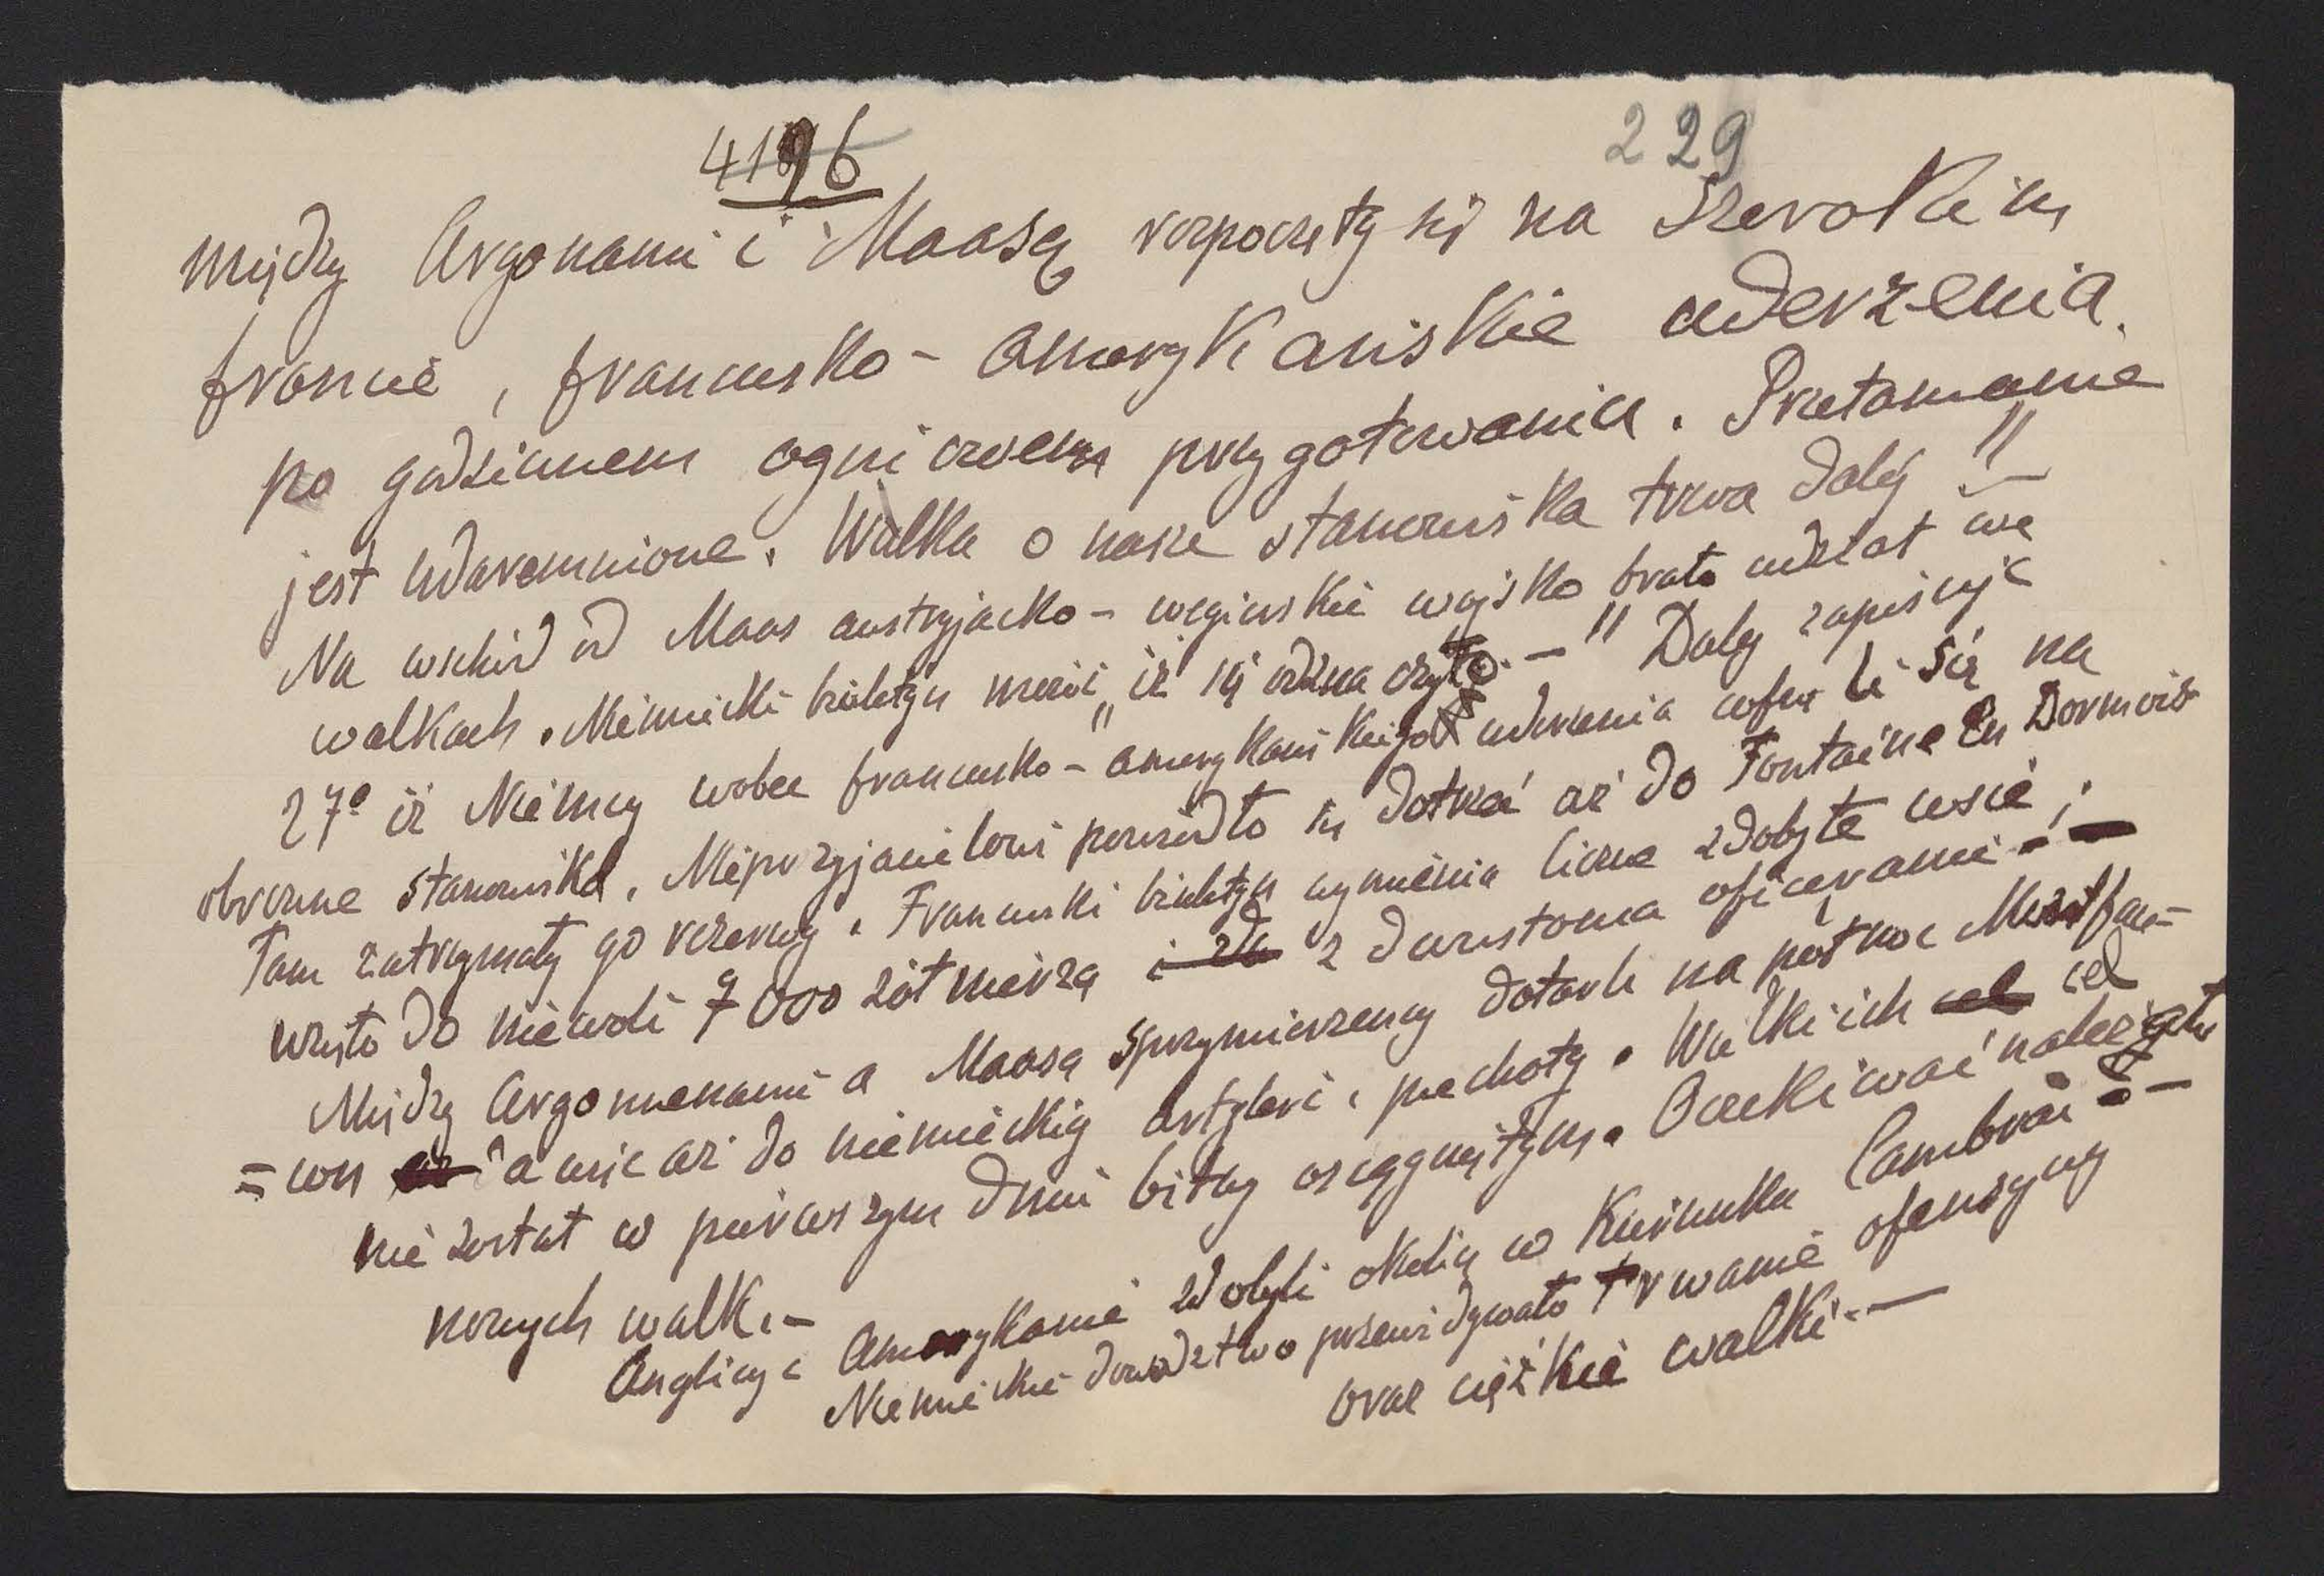 4196
229
między Argonami i Maasą rozpoczęły się na szerokim
froncie, francusko - amerykańskie uderzenia.
po godzinnem ogniowem przygotowaniu. Przełamanie
jest udaremnione. Walka o nasze stanowiska trwa dalej "—
Na wschód od Maas austryjacko - węgierskie wojsko brało udział we
walkach. Niemiecki biuletyn mówi „iż się odznaczyło. —" Dalej zapisuję
27º iż Niemcy wobec francusko - amerykańskiego uderzenia cofnęli się na
obronne stanowiska. Nieprzyjacielowi powiodło się dotrzeć aż do Fontaine En Dormois
Tam zatrzymały go rezerwy. Francuski biuletyn wymienia liczne zdobyte wsie;
wzięto do niewoli 7000 żołnierzą i z dwustoma oficerami. —
Między Argonnenami a Maasą sprzymierzeńcy dotarli na północ Montfau-
=con a więc aż do niemieckiej artyleri i piechoty. Walki ich cel cel
nie został w pierwszym dniu bitwy osiągniętym. Oczekiwać należało
nowych walk. —
Anglicy i Amerykanie zdobyli okolię w kierunku Cambrai —
Niemieckie dowództwo przewidywało trwanie ofenzywy
oraz ciężkie walki. —